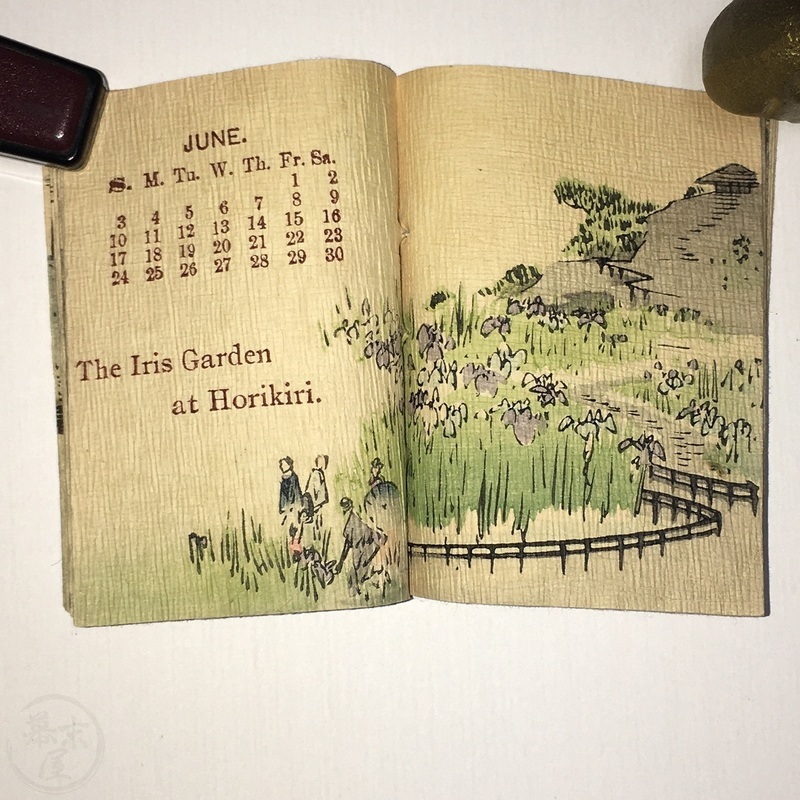 JUNE.
S. M. Tu. W. Th. Fr. Sa.
1 2
3 4 5 6 7 8 9
10 11 12 13 14 15 16
17 18 19 20 21 22 23
24 25 26 27 28 29 30
The Iris Garden
at Horikiri.
幕末
屋